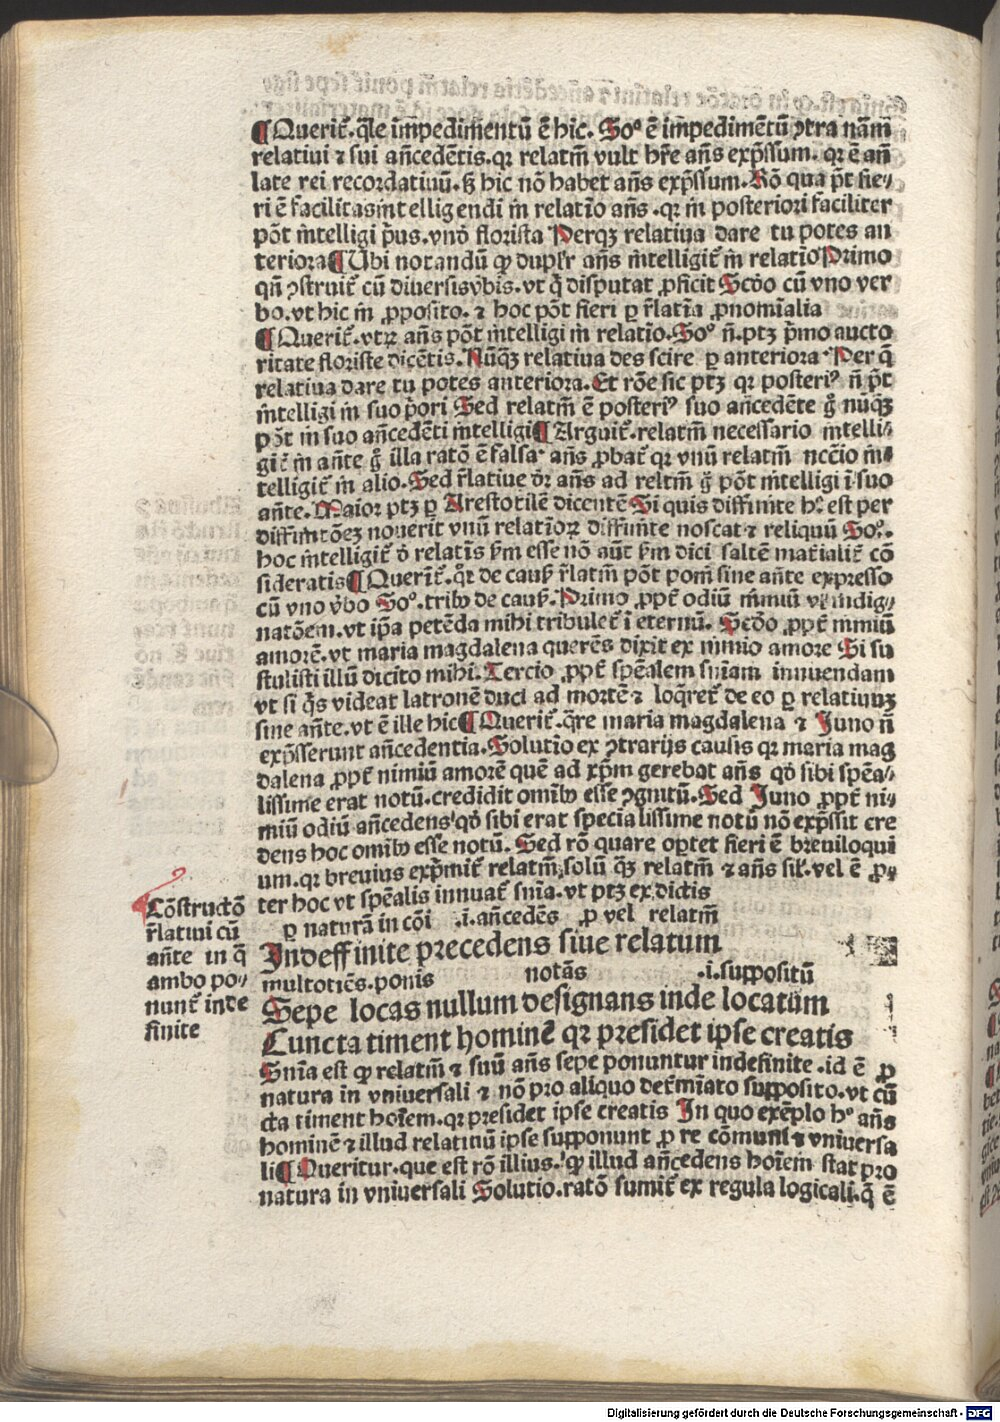 ¶Querit᷑.q̄le īmpedimentū ē hic. So⁰ ē im̄pedimētū ꝯtra nām̄
relatiui ⁊ sui añcedētis.qꝛ relatm̄ vult hr̄e añs exp̄ssum. qꝛ ē añ
late rei recordatiuū.sꝫ hic nō habet añs exp̄ssum.Rō qua p̄t fie⸗
ri ē facilitas intelligendi in̄ relatiō añs .qꝛ in̄ posteriori faciliter
pōt in̄telligi p̄us.vnō florista Perqꝫ relatiua dare tu potes an
teriora¶Ubi notandū ꝙ duplr̄ añs in̄telligit᷑ in̄ relatiō Primo
qñ ꝯstruit᷑ cū diuersis v̄bis.vt q̄ disputat ꝓficit Scōo cū vno ver
bo.vt hic in̄ ꝓposito. ⁊ hoc pōt fieri ꝑ r̄latīa ꝓnomīalia
¶Querit᷑.vtꝝ añs pōt in̄telligi in̄ relatiō.So⁰ ñ.ptꝫ p̄mo aucto
ritate floriste dicētis.Nūqꝫ relatiua des scire ꝑ anteriora Per q̄
relatiua dare tu potes anteriora.Et rōe sic ptꝫ qꝛ posteriꝰ ñ p̄t
in̄telligi in̄ suo p̄ori Sed relatm̄ ē posteriꝰ suo añcedēte g̊ nūqꝫ
pōt in suo añcedēti in̄telligi¶Arguit᷑.relatm̄ necessario in̄telli⸗
git᷑ in̄ añte g̊ illa ratō ē falsa· añs ꝓbat᷑ qꝛ vnū relatm̄ nccīo in̄⸗
telligit᷑ in̄ alio.Sed r̄latiue dr̄ añs ad reltm̄ g̊ pōt in̄telligi ī suo
añte. Maior ptꝫ ꝑ Arestotilē dicentē Si quis diffinite h⁰ est per
diffinitōeꝫ nouerit vnū relatiōꝝ diffinite noscat ⁊ reliquū So⁰.
hoc in̄telligit᷑ d̄ relatīs scd̄m esse nō aūt scd̄m dici saltē mat̄ialit᷑ cō
sideratis¶Querit᷑.qr̄ de cauß r̄latm̄ pōt poni sine añte expresso
cū vno v̄bo So⁰.tribꝰ de cauß. Primo ꝓpt᷑ odiū nimiū vl̄ indig⸗
natōem.vt ip̄a petēda mihi tribulet᷑ ī eternū. Scōo ꝓpt᷑ nimiū
amorē.vt maria magdalena querēs dixit ex nimio amore Si su
stulisti illū dicito mihi.Tercio ꝓpt᷑ spēalem snīam innuendam
vt si q̄s videat latronē duci ad mortē ⁊ loq̄ret᷑ de eo ꝑ relatiuuꝫ
sine añte.vt ē ille hic¶Querit᷑.q̄re maria magdalena ⁊ Juno ñ
exp̄sserunt añcedentia.Solutio ex ꝯtrarijs causis qꝛ maria mag
dalena ꝓpt᷑ nimiū amorē quē ad xp̄m gerebat añs qd̄ sibi spēa⸗
lissime erat notū.credidit omībꝰ esse ꝯgnitū.Sed Juno ꝓpt᷑ ni⸗
miū odiū añcedens qd̄ sibi erat specialissime notū nō exp̄ssit cre
dens hoc omībꝰ esse notū. Sed rō quare oꝑtet fieri ē breuiloqui
um.qꝛ breuius exp̄mit᷑ relatm̄,solū qꝫ relatm̄ ⁊ añs sił.vel ē ꝓp⸗
ter hoc vt spēalis innuat᷑ snīa.vt ptꝫ ex dictis
ꝑ naturā in cōi .i.añcedēs ꝓ vel relatm̄
Indeffinite precedens siue relatum
multotiēs.ponis notās .i.suppositū
Sepe locas nullum designans inde locatum
Cuncta timent hominē qꝛ presidet ipse creatis
Cōstructō
r̄latiui cū
añte in q̄
ambo po⸗
nunt᷑ inde
finite
Snīa est ꝙ relatm̄ ⁊ suū añs sepe ponuntur indefinite .id ē ꝓ
natura in vniuersali ⁊ nō pro aliquo det᷑mīato supposito.vt cū
cta timent hoīem.qꝛ presidet ipse creatis In quo exēplo h⁰ añs
hominē ⁊ illud relatiuū ipse supponunt ꝓ re cōmuni ⁊ vniuersa
li¶Queritur.que est rō illius. ꝙ illud añcedens hoīem stat pro
natura in vniuersali Solutio.ratō sumit᷑ ex regula logicali.q̄ ē
Digitalisierung gefördert durch die Deutsche Forschungsgemeinschaft - DFG